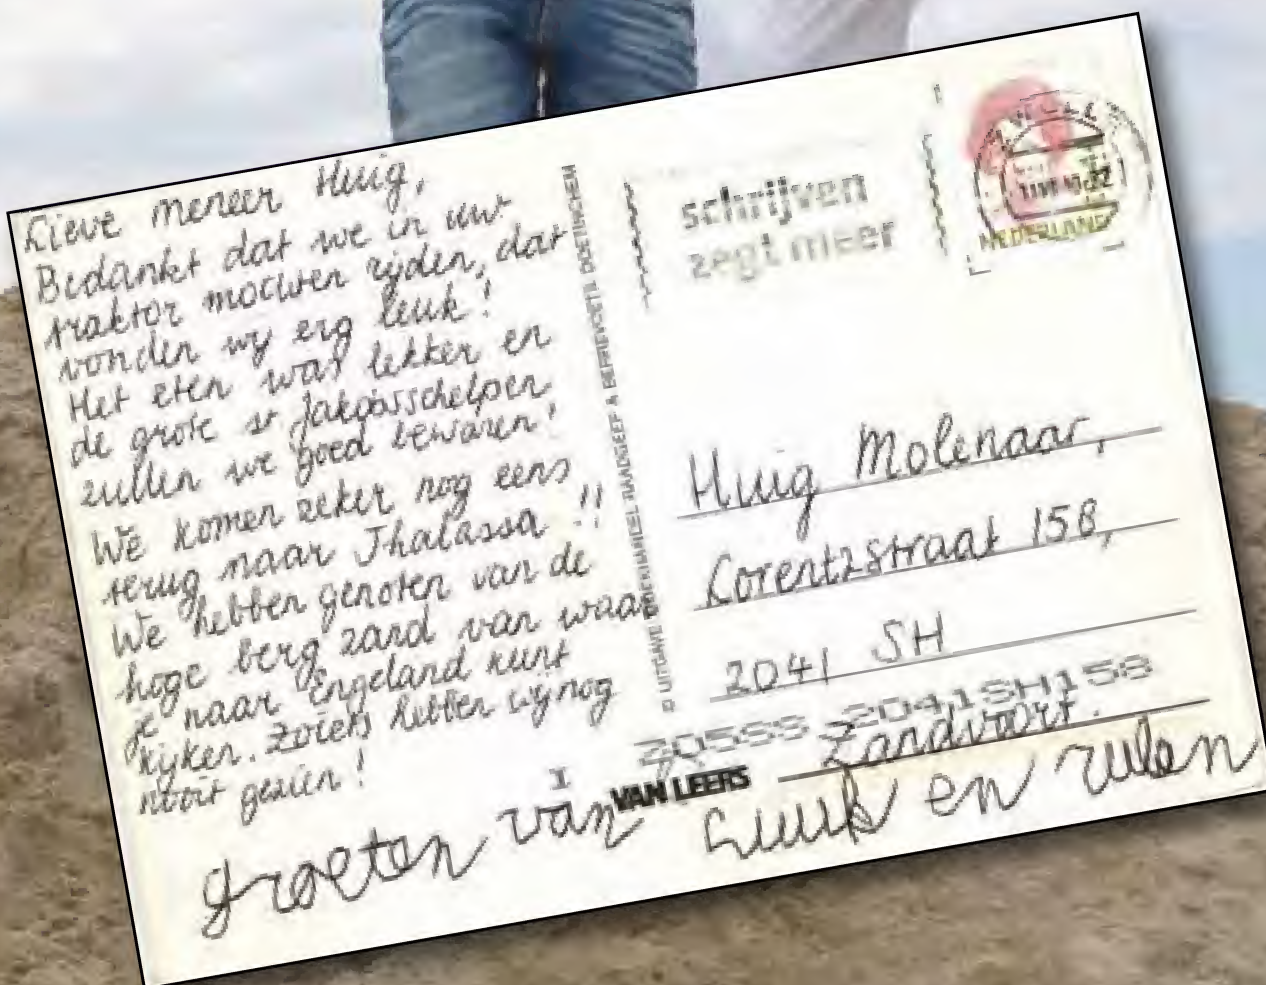 Lieve meneer Huig,
Bedankt dat we in uw
traktor mochten rijden, dat
vonden wij erg leuk!
Het eten was lekker en
de grote st Jakobsschelpen
zullen we goed bewaren!
We komen zeker nog eens
terug naar Thalassa!!
We hebben genoten van de
hoge berg zand van waar
je naar Engeland kunt
kijken. Zoiets hebben wij nog
nooit gezien!
groeten van Luuk en rulen
schrijven
zegt meer
NEDERLAND
Huig Molenaar,
Lorentzstraat 158,
2041 SH
Zandvoort.
2041SH158
VAN LEERS